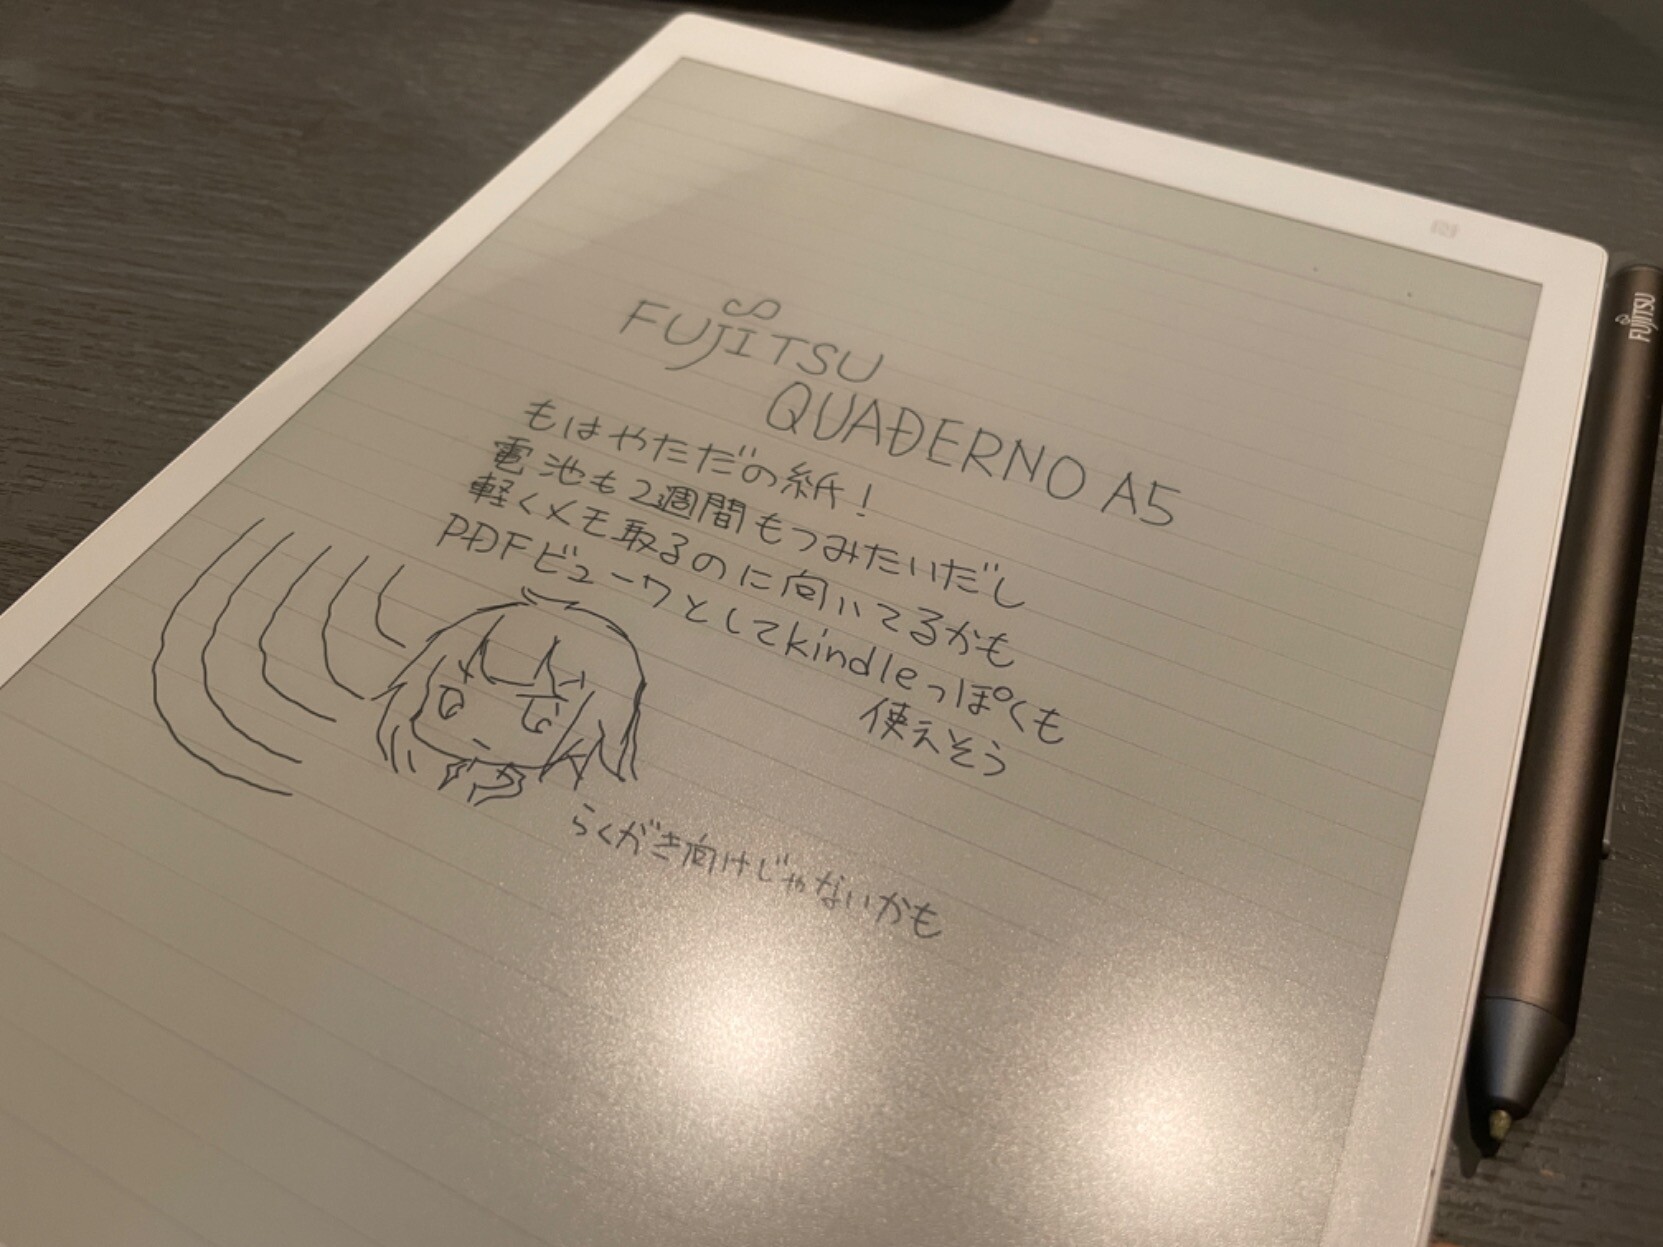 FUJITSU
QUADERNO A5
もはやただの紙！
電池も2週間もつみたいだし
軽くメモ取るのに向いてるかも
PDFビューワとしてkindleっぽくも
使えそう
らくがき向けじゃないかも
FUJITSU